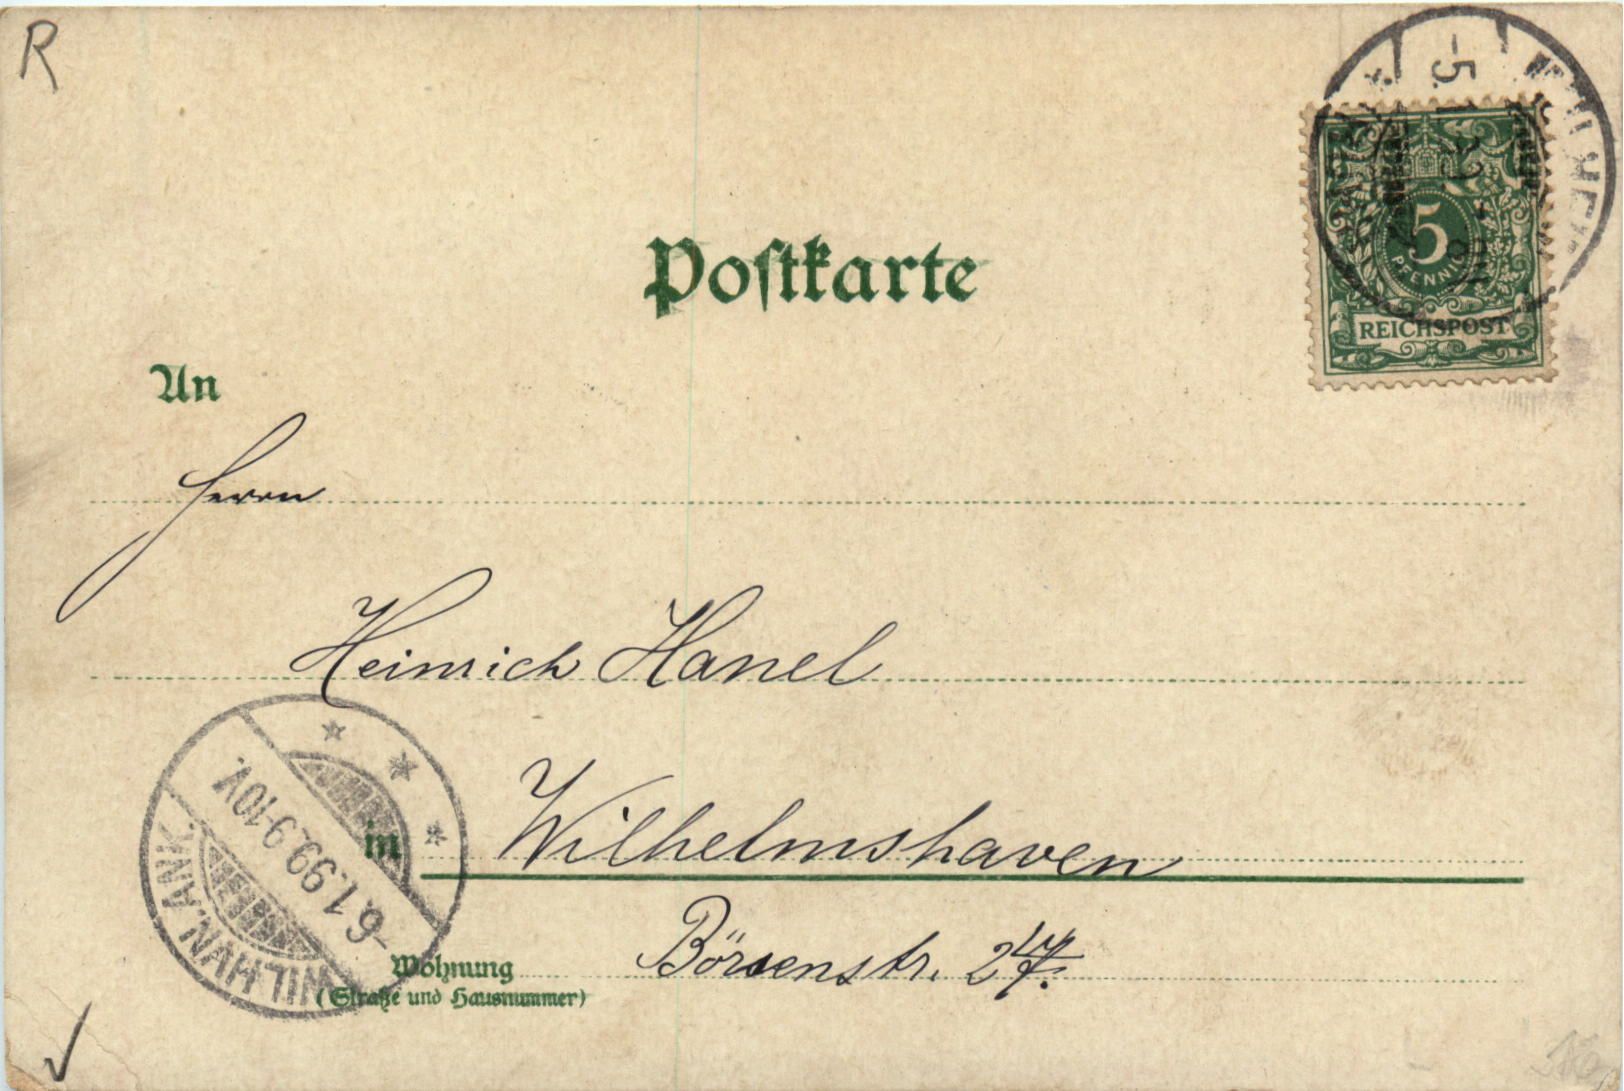 R
5
PFENNIG
REICHSPOST
Postkarte
An
Herrn
Heinrich Hanel
in Wilhelmshaven
Wohnung Börsenstr. 27.
(Straße und Hausnummer)
WILHELMSHAVEN ANK.
-6.1.99.9-10V.